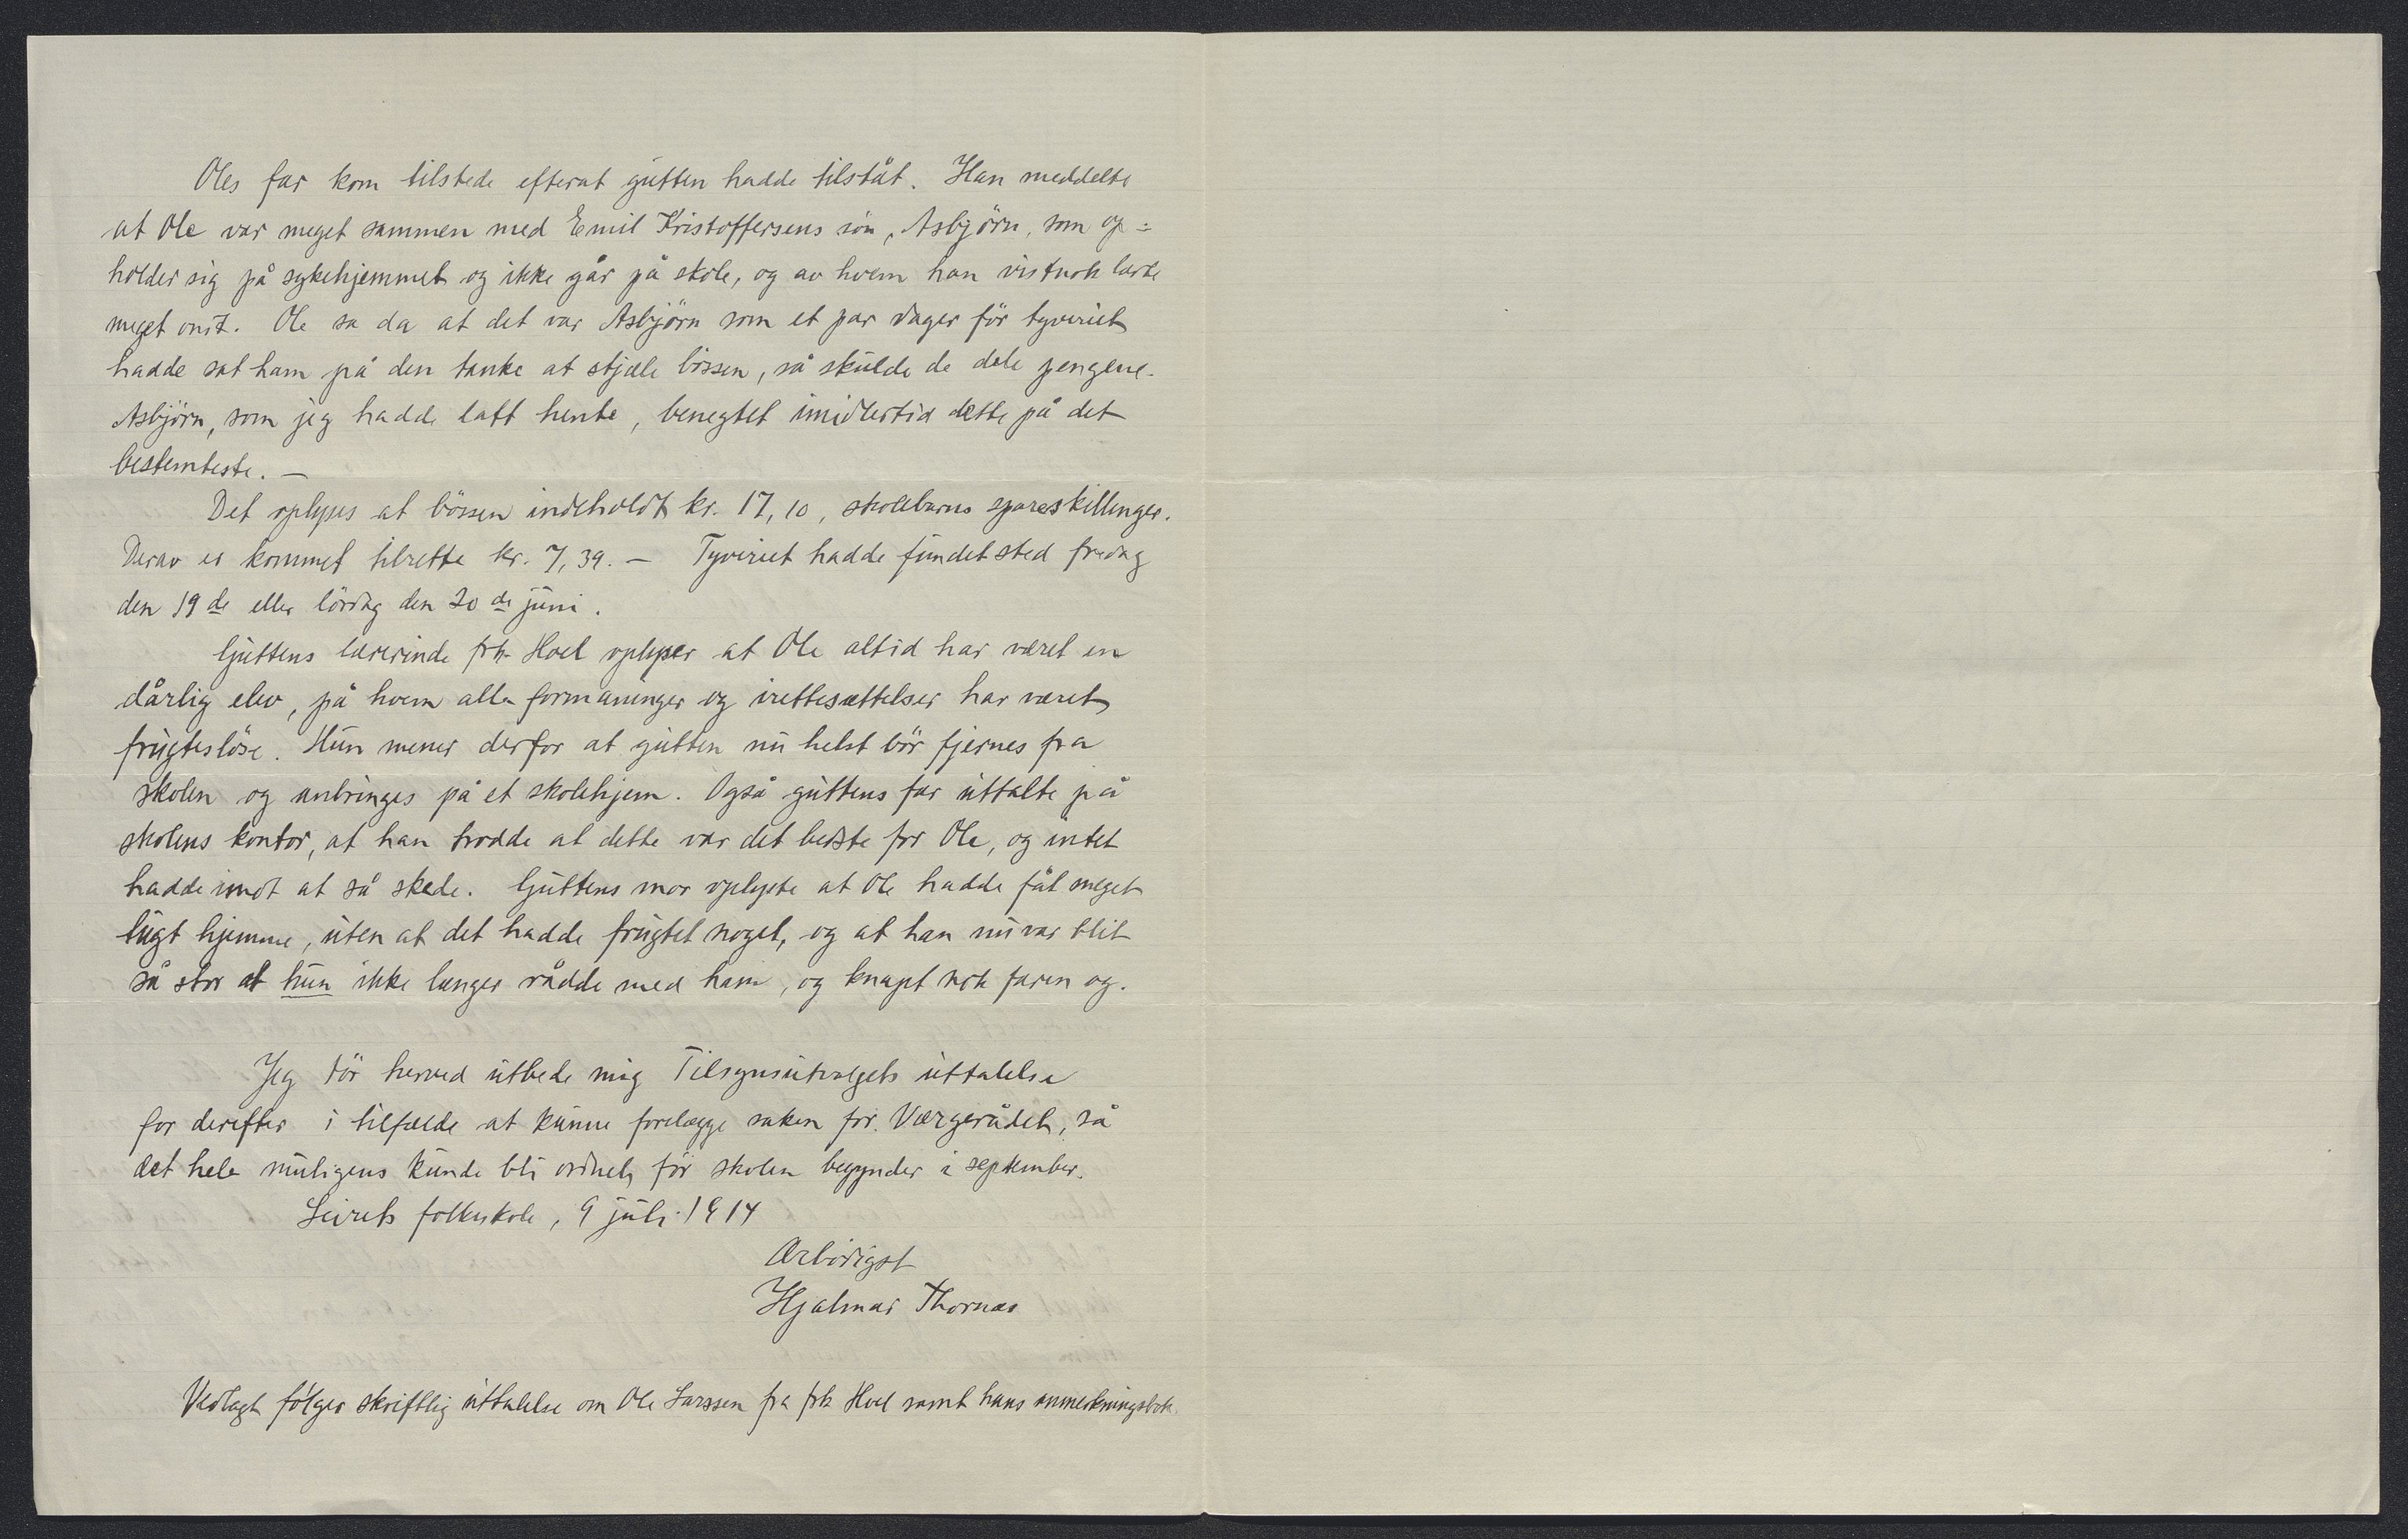 Oles far kom tilstede efterat gutten hadde tilståt. Han meddelte
at Ole var meget sammen med Emil Kristoffersens sön, Asbjörn, som op=
holder sig på sykehjemmet og ikke går på skole, og av hvem han vistnok lærte
meget ondt. Ole sa da at det var Asbjörn som et par dager för tyveriet
hadde sat ham på den tanke at stjæle bössen, så skulde de dele pengene.
Asbjörn, som jeg hadde latt hente, benegtet imidlertid dette på det
bestemteste. —
Det oplyses at bössen indeholdt kr. 17,10, skolebarns spareskillinger.
Derav er kommet tilrette kr. 7,39. — Tyveriet hadde fundet sted fredag
den 19de eller lördag den 20de juni.
Guttens lærerinde frk. Hoel oplyser at Ole altid har været en
dårlig elev, på hvem alle formaninger og irettesættelser har været
frugtesløse. Hun mener derfor at gutten nu helst bör fjernes fra
skolen og anbringes på et skolehjem. Også guttens far uttalte på
skolens kontor, at han trodde at dette var det bedste for Ole, og intet
hadde imot at så skede. Guttens mor oplyste at Ole hadde fåt meget
tugt hjemme, uten at det hadde frugtet noget, og at han nu var blit
så stor at hun ikke længer rådde med ham, og knapt nok faren og.
Jeg tör herved utbede mig Tilsynsutvalgets uttalelse
for derefter i tilfælde at kunne forelægge saken for Værgerådet, så
det hele muligens kunde bli ordnet för skolen begynder i september.
Leirets folkeskole, 9 juli 1914
Ærbödigst
Hjalmar Thornæs
Vedlagt følger skriftlig uttalelse om Ole Larssen fra frk Hoel samt hans anmerkningsbok.